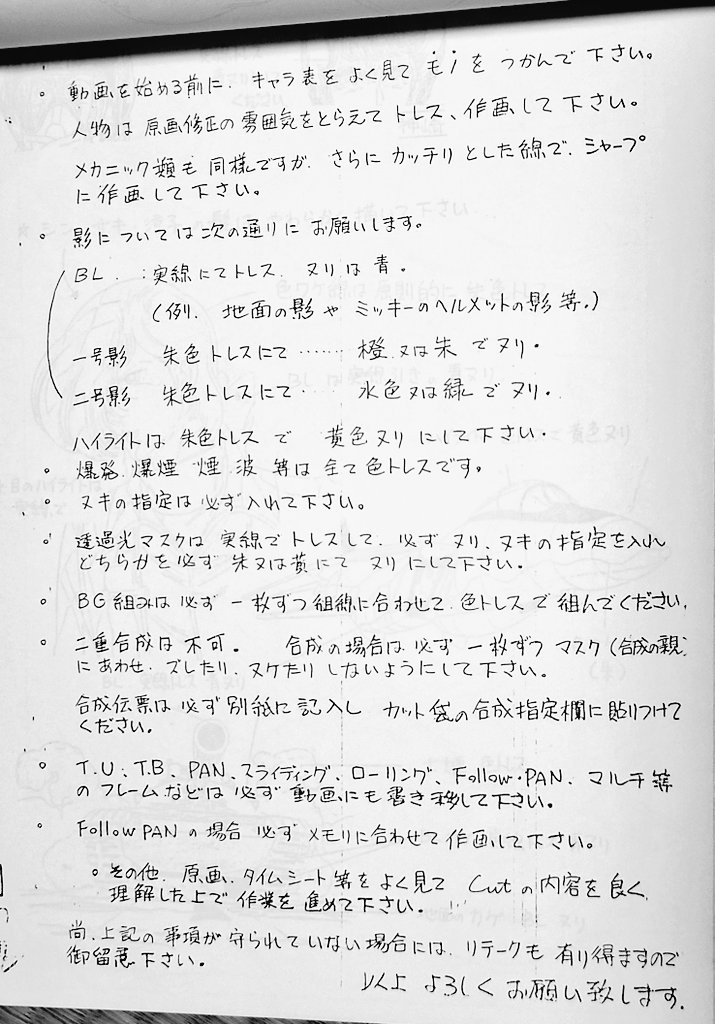 。動画を始める前に、キャラ表をよく見て もiを つかんで下さい。
人物は原画修正の雰囲気をとらえてトレス、作画して下さい。
メカニック類も同様ですが、さらにカッチリとした線で、シャープ
に作画して下さい。
。影については次の通りにお願いします。
BL. :実線にてトレス、ヌリは青。
(例、地面の影やミッキーのヘルメットの影等。)
一号影 朱色トレスにて……橙又は朱でヌリ。
二号影 朱色トレスにて……水色又は緑でヌリ。
ハイライトは朱色トレスで 黄色ヌリにして下さい。
。爆発、爆煙、煙、波等は全て色トレスです。
。ヌキの指定は必ず入れて下さい。
。透過光マスクは実線でトレスして、必ずヌリ、ヌキの指定を入れ
どちらかを必ず朱又は黄にてヌリにして下さい。
。BG組みは必ず一枚ずつ組線に合わせて、色トレスで組んでください。
。二重合成は不可。 合成の場合は必ず一枚ずつマスク(合成の親)
にあわせ、ズレたり、ヌケたりしないようにして下さい。
合成伝票は必ず別紙に記入しカット袋の合成指定欄に貼りつけて
ください。
。T.U、T.B、PAN、スライディング、ローリング、Follow・PAN、マルチ等
のフレームなどは必ず動画にも書き移して下さい。
。Follow PANの場合必ずメモリに合わせて作画して下さい。
。その他、原画、タイムシート等をよく見てCutの内容を良く
理解した上で作業を進めて下さい。
尚、上記の事項が守られていない場合には、リテークも有り得ますので
御留意下さい。
以上よろしくお願い致します。